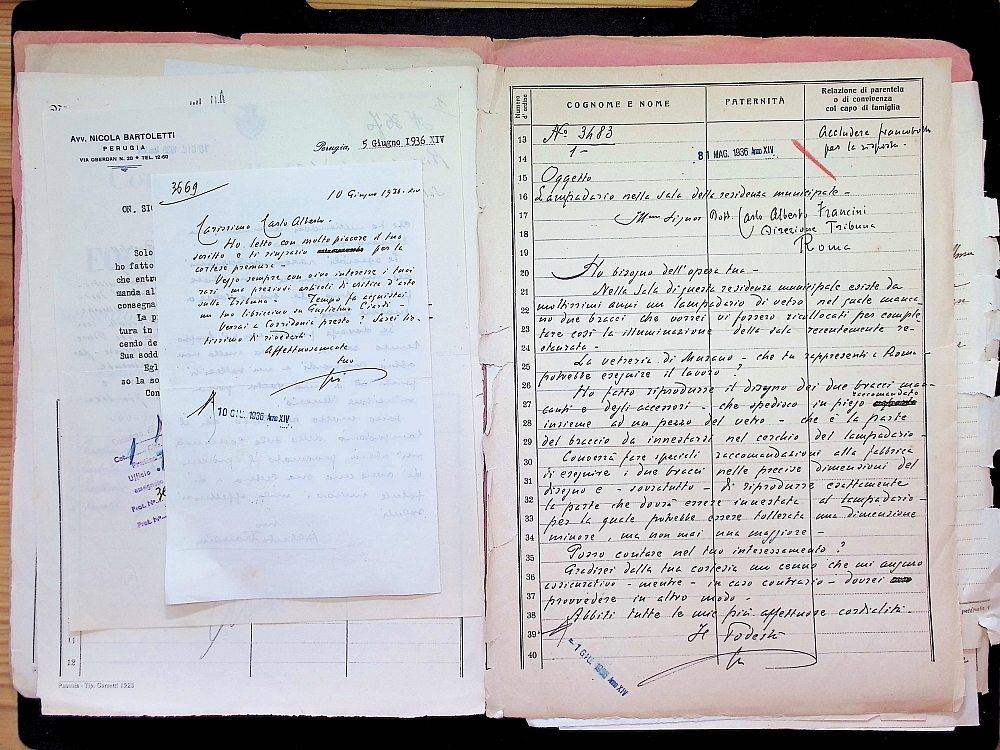 Avv. NICOLA BARTOLETTI
PERUGIA
VIA OBERDAN N. 20 • TEL. 12-60
Perugia, 5 Giugno 1936 XIV
ON. SI
Solo
ho fatto
che entr
manda al
consegna
La p
tura in
cendo de
Sua sodd
Egl
so la so
Con
Ufficio
11
12
Perugia - Tip. Garzetti 1925
3669
10 Giugno 1936-XIV
Carissimo Carlo Alberto.
Ho letto con molto piacere il tuo
scritto e ti ringrazio per la
cortese premura -
Veggo sempre con vivo interesse i tuoi
rari ma preziosi articoli di critica d'arte
sulla Tribuna - Tempo fa acquistai
un tuo libriccino su Guglielmo Ciardi -
Verrai a Corridonia presto? Sarei lie -
tissimo di rivederti.
Affettuosamente
tuo
10 GIU. 1936 Anno XIV
Numero d'ordine
COGNOME E NOME
PATERNITÀ
Relazione di parentela
o di convivenza
col capo di famiglia
13 No 3483
Accludere francobollo
per la risposta -
14 1 -
31 MAG. 1936 Anno XIV
15 Oggetto
16 Lampadario nella sala della residenza municipale -
17 Ill.mo Signor Dott. Carlo Alberto Francini
18 Direzione Tribuna
19 Roma
20 Ho bisogno dell'opera tua -
21 Nella sala di questa residenza municipale esiste da
22 moltissimi anni un lampadario di vetro nel quale manca
no due bracci che vorrei vi fossero ricollocati per comple
23 tare così la illuminazione della sala recentemente re-
24 staurata -
25 La vetreria di Murano - che tu rappresenti a Roma -
potrebbe eseguire il lavoro?
26 Ho fatto riprodurre il disegno dei due bracci man-
27 canti e degli accessori - che spedisco in piego raccomandato
28 insieme ad un pezzo del vetro - che è la parte
29 del braccio da innestarsi nel cerchio del lampadario -
30 Converrà fare speciali raccomandazioni alla fabbrica
31 di eseguire i due bracci nelle precise dimensioni del
disegno e - sovratutto - di riprodurre esattamente
32 la parte che dovrà essere innestata al lampadario -
33 per la quale potrebbe essere tollerata una dimensione
34 minore, ma non mai una maggiore -
35 Posso contare nel tuo interessamento?
36 Gradirei dalla tua cortesia un cenno che mi auguro
assicurativo - mentre - in caso contrario - dovrei
37 provvedere in altro modo -
38 Abbiti tutte le mie più affettuose cordialità -
39 Il Podestà
40
1 GIU. 1936 Anno XIV